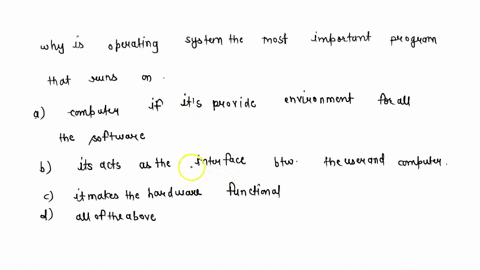 why is operating system the most important program
that runs on .
a) computer if it's provide environment for all
the software
b) its acts as the interface btw. the user and computer.
c) it makes the hardware functional
d) all of the above